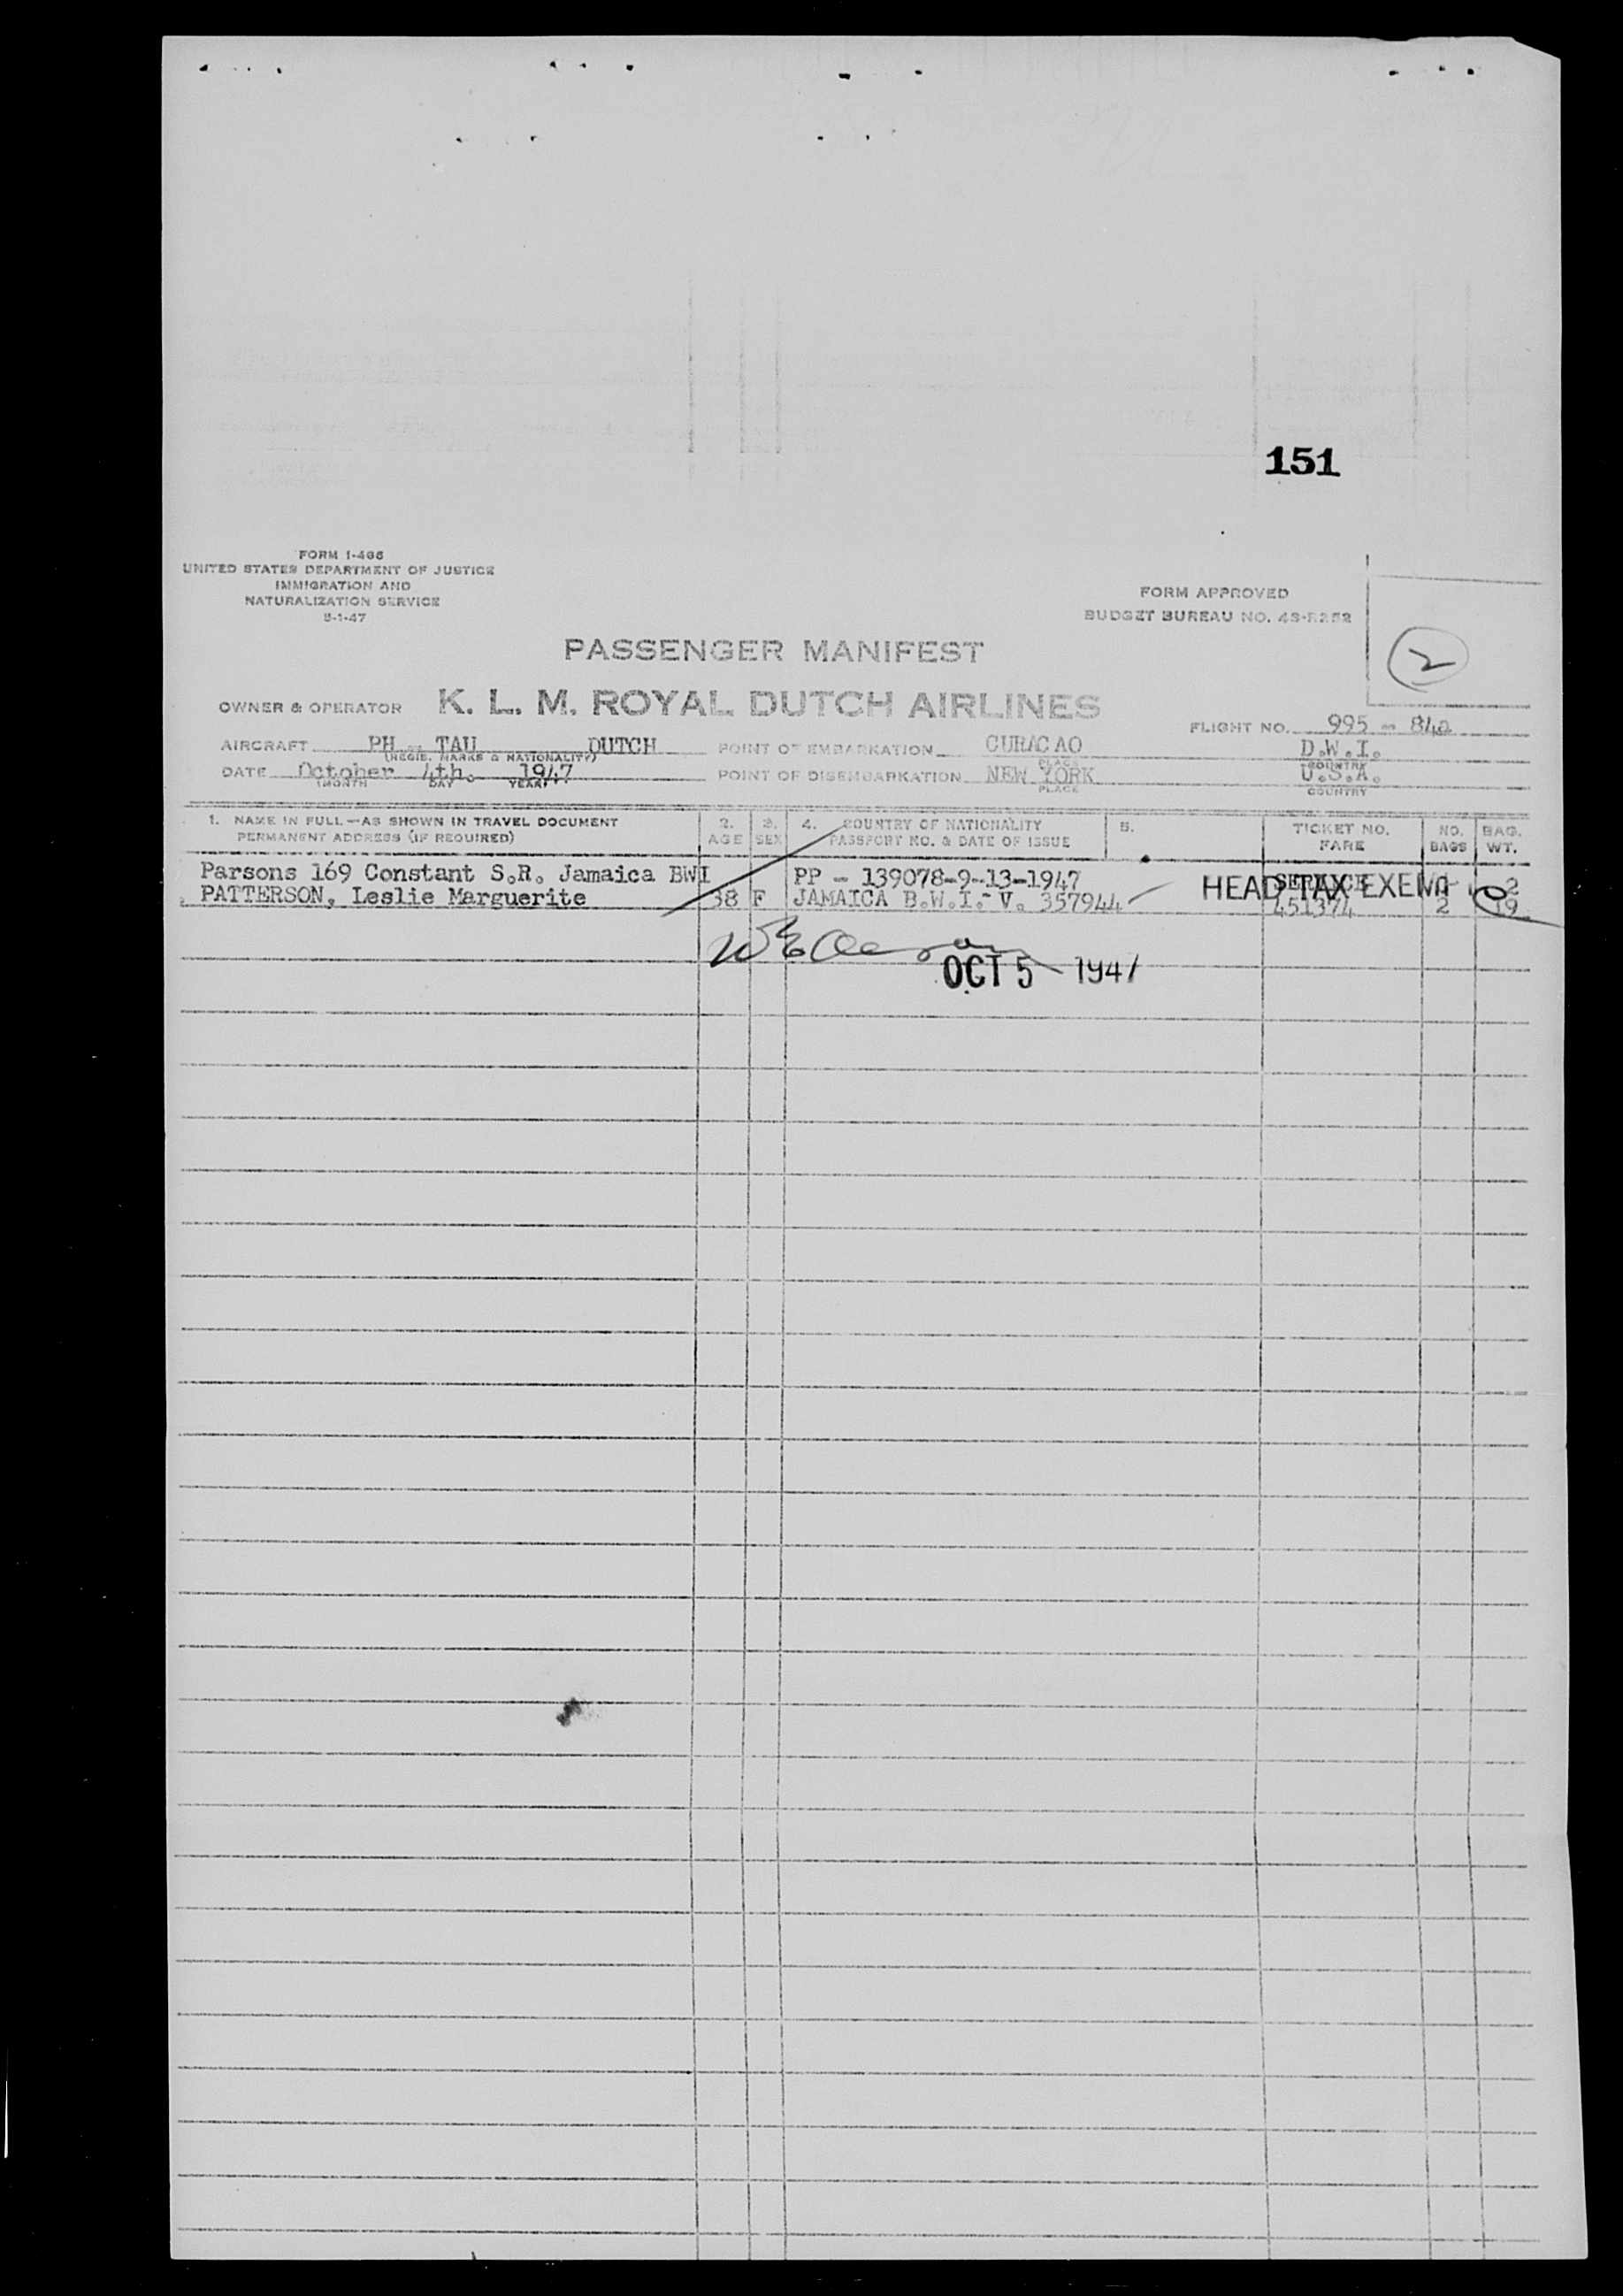 151
FORM I-466
UNITED STATES DEPARTMENT OF JUSTICE
IMMIGRATION AND
NATURALIZATION SERVICE
5-1-47
FORM APPROVED
BUDGET BUREAU NO. 43-R252
2
PASSENGER MANIFEST
OWNER & OPERATOR K. L. M. ROYAL DUTCH AIRLINES
FLIGHT NO. 995 - 842
AIRCRAFT PH - TAU DUTCH POINT OF EMBARKATION CURACAO D.W.I.
(REGIS. MARKS & NATIONALITY) PLACE COUNTRY
DATE October 4th. 1947 POINT OF DISEMBARKATION NEW YORK U.S.A.
(MONTH DAY YEAR) PLACE COUNTRY
1. NAME IN FULL—AS SHOWN IN TRAVEL DOCUMENT 2. 3. 4. COUNTRY OF NATIONALITY 5. TICKET NO. NO. BAG.
PERMANENT ADDRESS (IF REQUIRED) AGE SEX PASSPORT NO. & DATE OF ISSUE FARE BAGS WT.
Parsons 169 Constant S.R. Jamaica BWI PP - 139078-9-13-1947 SERVICE 2
HEAD TAX EXEM
PATTERSON, Leslie Marguerite 38 F JAMAICA B.W.I.- V. 357944 451374 2 19
OCT 5 1947